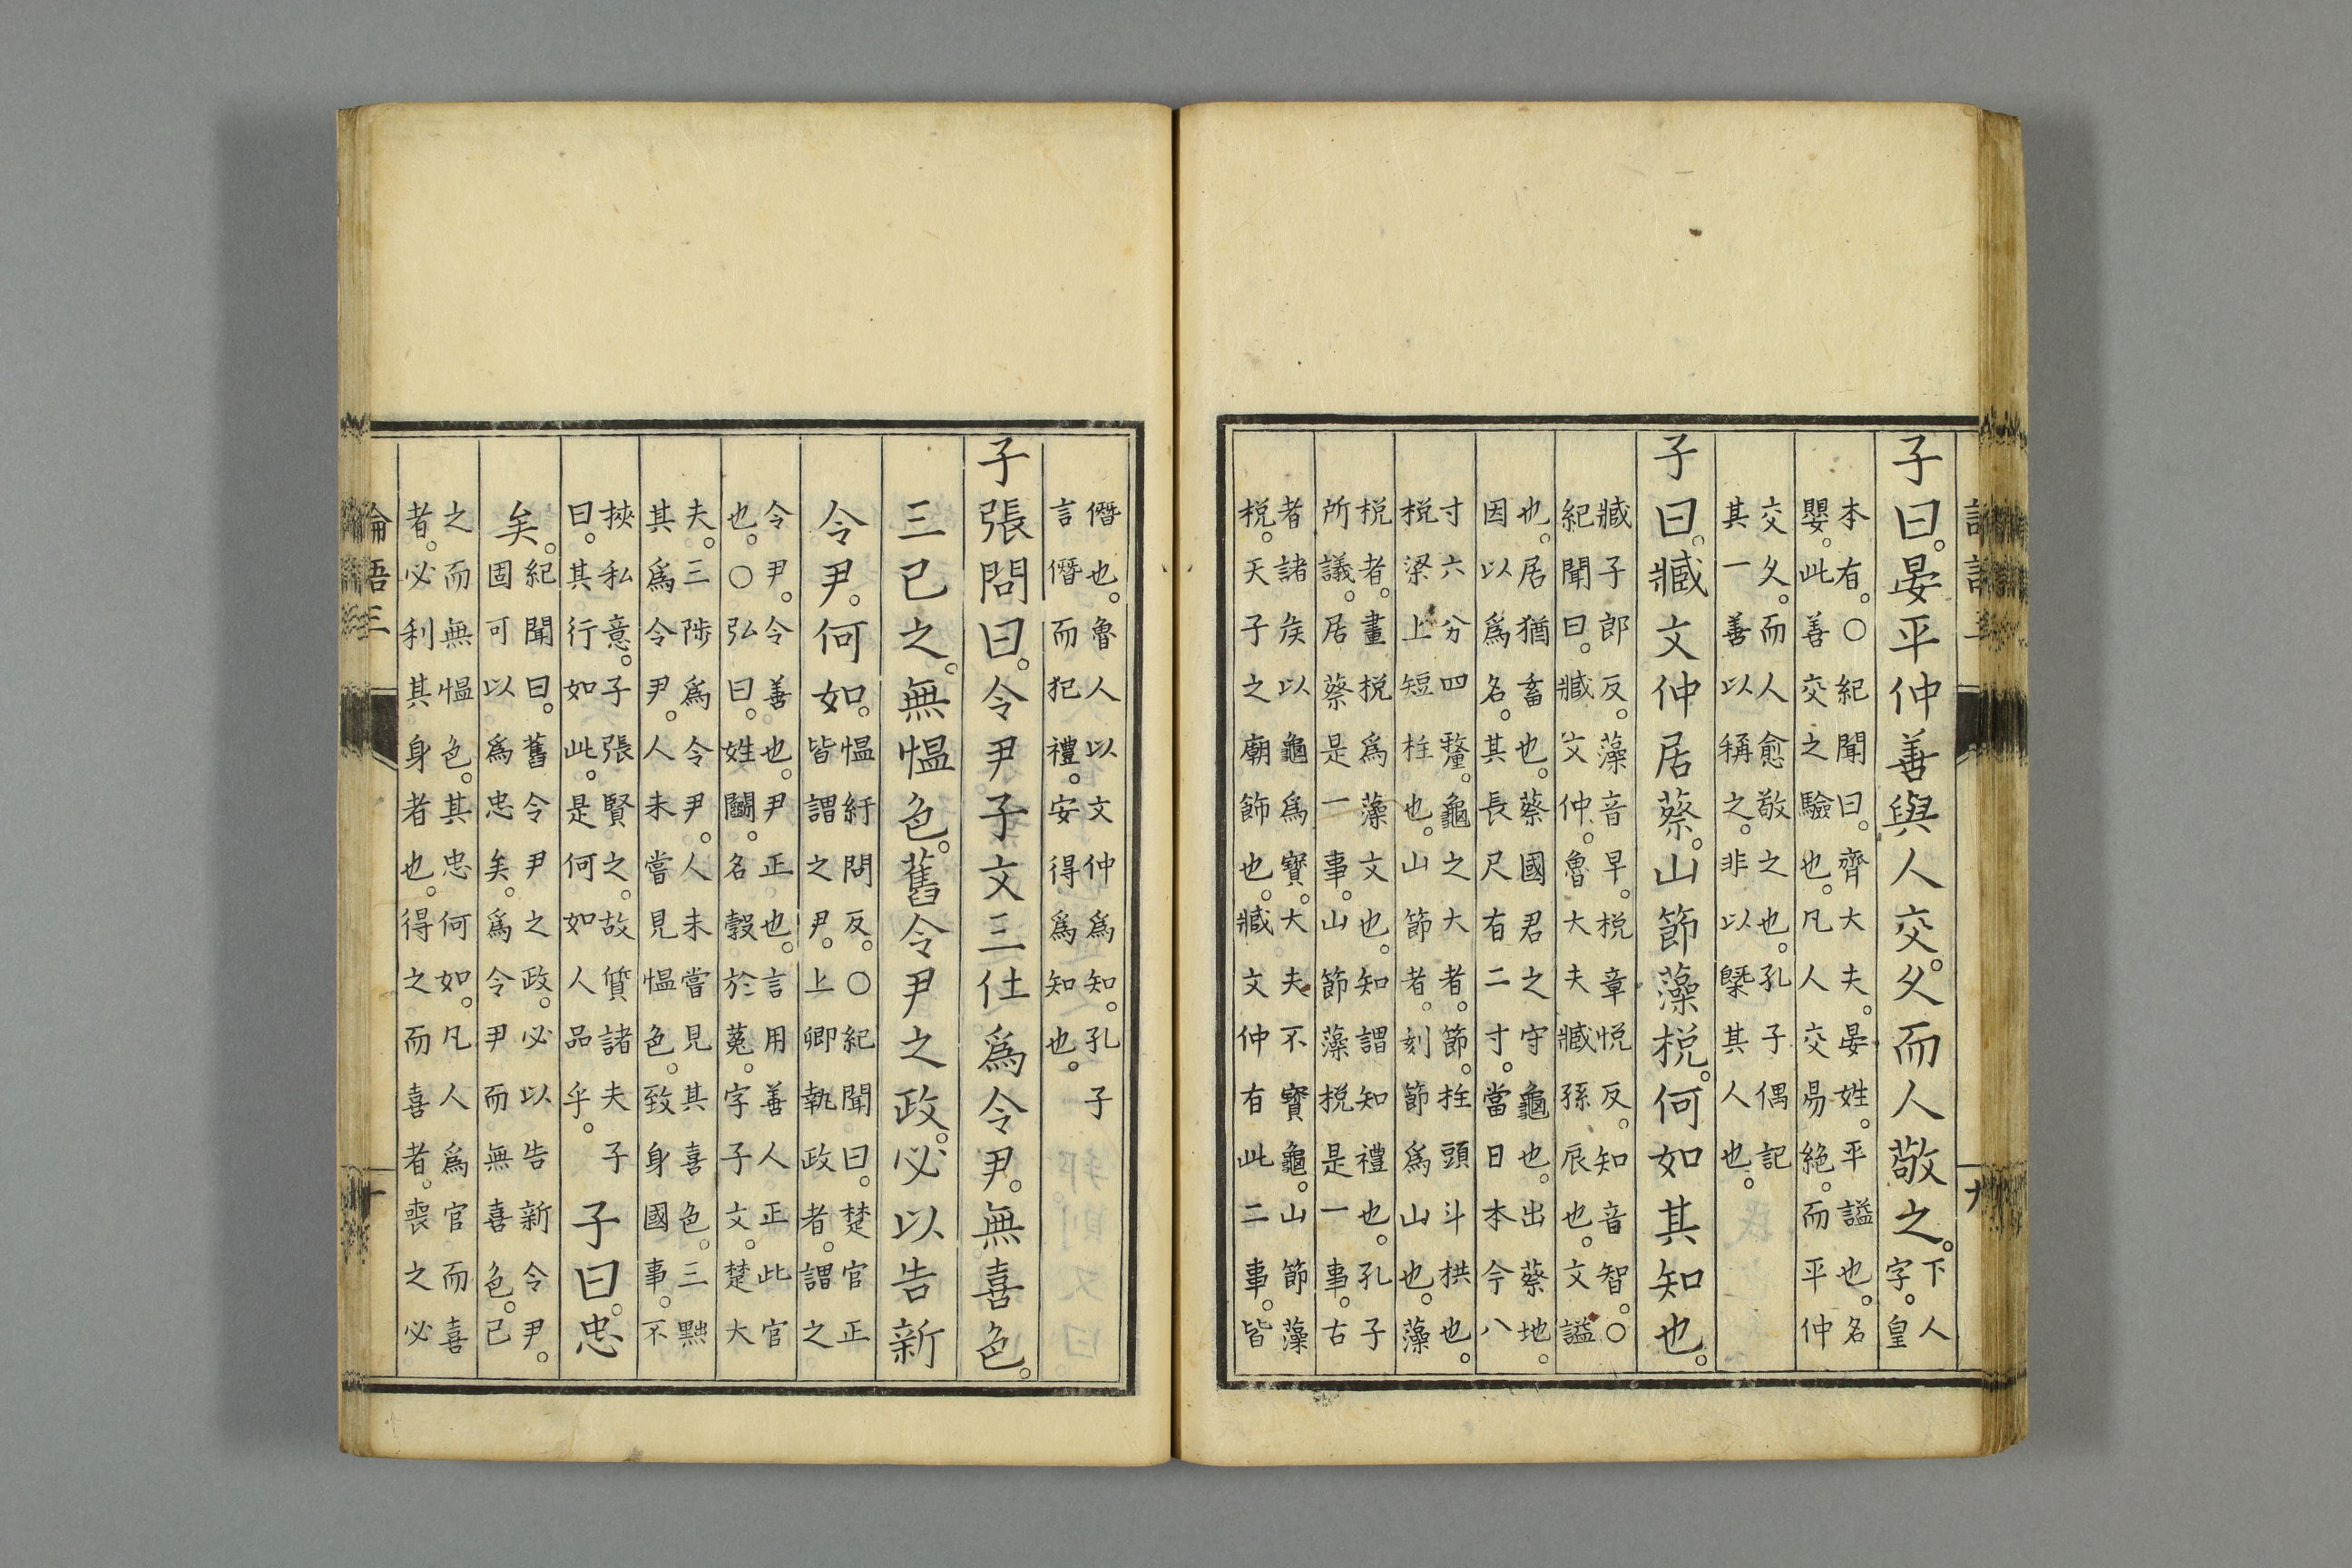 子曰。晏平仲善與人交。久而人敬之。下人
字。皇
本有。○紀聞曰。齊大夫。晏姓。平諡也。名
嬰。此善交之驗也。凡人交易絕。而平仲
交久。而人愈敬之也。孔子偶記
其一善以稱之。非以槩其人也。
子曰。臧文仲居蔡。山節藻梲。何如其知也。
臧子郎反。藻音早。梲章悅反。知音智。○
紀聞曰。臧文仲。魯大夫臧孫辰也。文謚
也。居猶畜也。蔡國君之守龜也。出蔡地。
因以爲名。其長尺有二寸。當日本今八
寸六分四釐。龜之大者。節。柱頭斗栱也。
梲梁上短柱也。山節者。刻節爲山也。藻
梲者。畫梲爲藻文也。知謂知禮也。孔子
所議。居蔡是一事。山節藻梲是一事。古
者諸侯以龜爲寳。大夫不寳龜。山節藻
梲。天子之廟飾也。臧文仲有此二事。皆
僭也。魯人以文仲爲知。孔子
言僭而犯禮。安得爲知也。
子張問曰。令尹子文三仕爲令尹。無喜色。
三已之。無慍色。舊令尹之政。必以告新
令尹。何如。慍紆問反。○紀聞曰。楚官正
皆謂之尹。上卿執政者。謂之
令尹。令善也。尹正也。言用善人正此官
也。○弘曰。姓鬬。名糓於菟。字子文。楚大
夫。三陟爲令尹。人未當見其喜色。三黜
其爲令尹。人未當見慍色。致身國事。不
挾私意。子張賢之。故質諸夫子
曰。其行如此。是何如人品乎。
子曰。忠
矣。紀聞曰。舊令尹之政。必以告新令尹。
固可以爲忠矣。爲令尹而無喜色。已
之而無慍色。其忠何如。凡人爲官而喜
者。必利其身者也。得之而喜者。喪之必
論語三